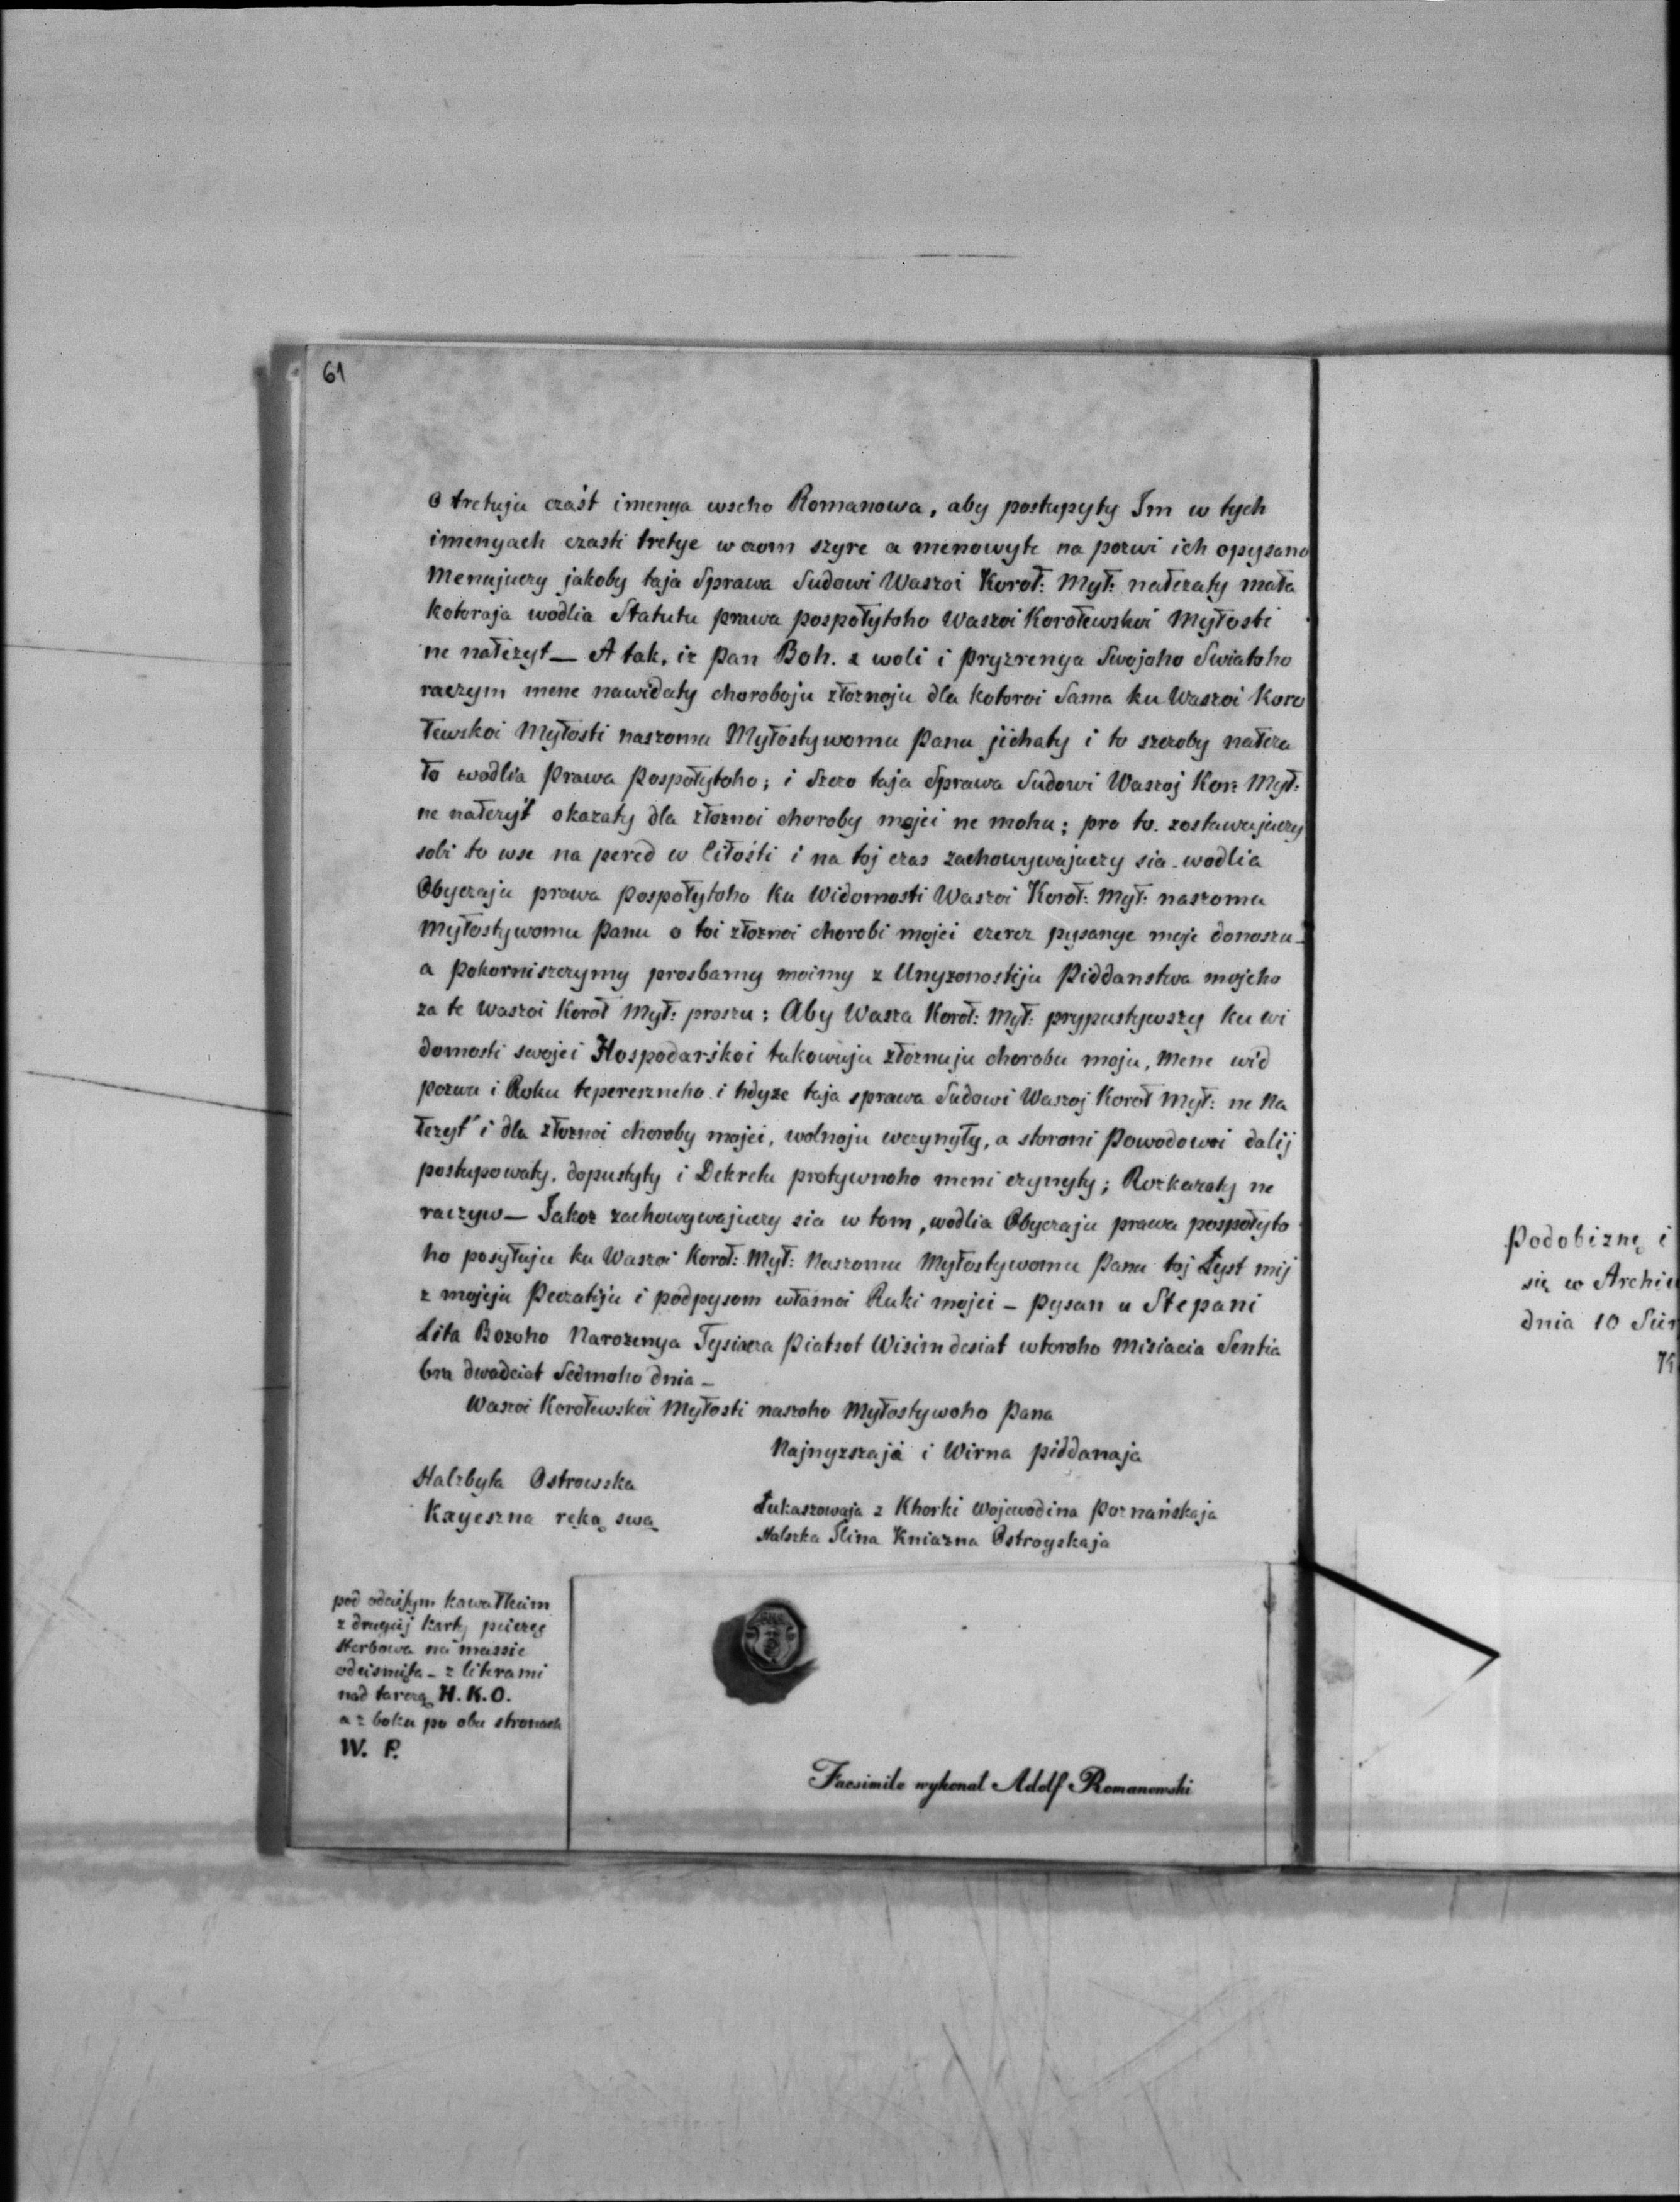 61
o tretuju cza´st imenya wseho Romanowa, aby postupyty Im w tych
imenyach czasti tretye w czom szyre a menowyte na pozwi ich opysano
Menujuczy jakoby taja Sprawa Sudowi Waszoi Koroł: Mył: nałezaty mała
kotoraja wodlia Statutu prawa pospołytoho Waszoi Korołewskoi Myłosti
ne nałezyt — A tak, iz Pan Boh. z woli i pryzrenya Swojoho Swiatoho
raczym mene nawidaty choroboju złoznoju dla kotoroi Sama ku Waszoi Koro
łewskoi Myłosti naszomu Myłostywomu Panu jichaty i to szczoby nałeza
ło wodlia Prawa Pospołytoho; i Szczo taja Sprawa Sudowi Waszoj Kor: Mył:
ne nałezyt́ okazaty dla złoznoi choroby mojei ne mohu; pro to. zostawujuczy
sobi to wse na pered w Ciłośti i na toj czas zachowywajuczy sia wodlia
Obyczaju prawa Pospołytoho ku Widomosti Waszoi Koroł: Mył: naszomu
Myłostywomu Panu o toi złoznoi chorobi mojei czerez pysanye moje donoszu —
a Pokorniszczymy prosbamy moimy z Unyzonostiju Piddanstwa mojeho
za te Waszoi Koroł Mył: proszu: Aby Wasza Koroł: Mył: prypustywszy ku wi
domosti swojei Hospodarśkoi takowuju złoznuju chorobu moju, Mene wid
pozwu i Roku tepereszneho i hdyze taja sprawa Sudowi Waszoj Koroł Mył: ne Na
łezyt́ i dla złoznoi choroby mojei, wolnoju wczynyty, a storoni Powodowoi dalij
postupowaty, dopustyty i Dekretu protywnoho meni czynyty; Rozkazaty ne
raczyw — Jakoz zachowywajuczy sia w tom, wodlia Obyczaju prawa pospołyto
ho posyłaju ku Waszoi Koroł: Mył: Naszomu Myłostywomu Panu toj Łyst mij
z mojeju Peczatiju i podpysom własnoi Ruki mojei — Pysan u Stepani
Lita Bozoho Narozenya Tysiacza Piatsot Wisimdesiat wtoroho Misiacia Sentia
bra dwadciat Sedmoho dnia —
Waszoi Korołewskoi Myłosti naszoho Myłostywoho Pana
Najnyzszaja i Wirna piddanaja
Halzbyta Ostrowska
Kxyeszna ręką swą
Łukaszowaja z Khorki Wojewodina Poznańskaja
Halszka Ilina Kniazna Ostrogskaja
pod odciętym kawałkiem
z drugiej karty pieczęć
Herbowa na massie
odciśnięta — z literami
nad tarczą H. K. O.
a z boku po obu stronach
W. P.
Facsimile wykonal Adolf Romanowski
Podobiznę i
się w Archi
dnia 10